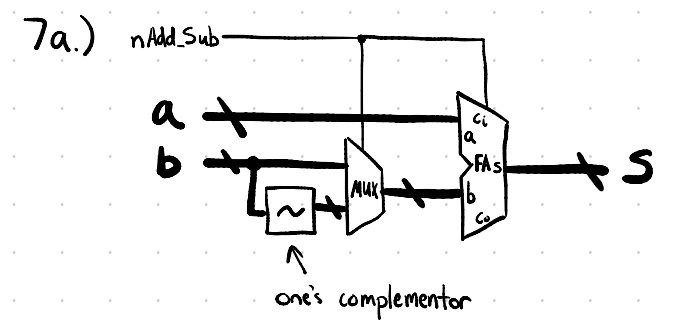 7a.)
nAdd_Sub
a
b
~
MUX
Ci
a
FAs
b
Co
S
one's complementor